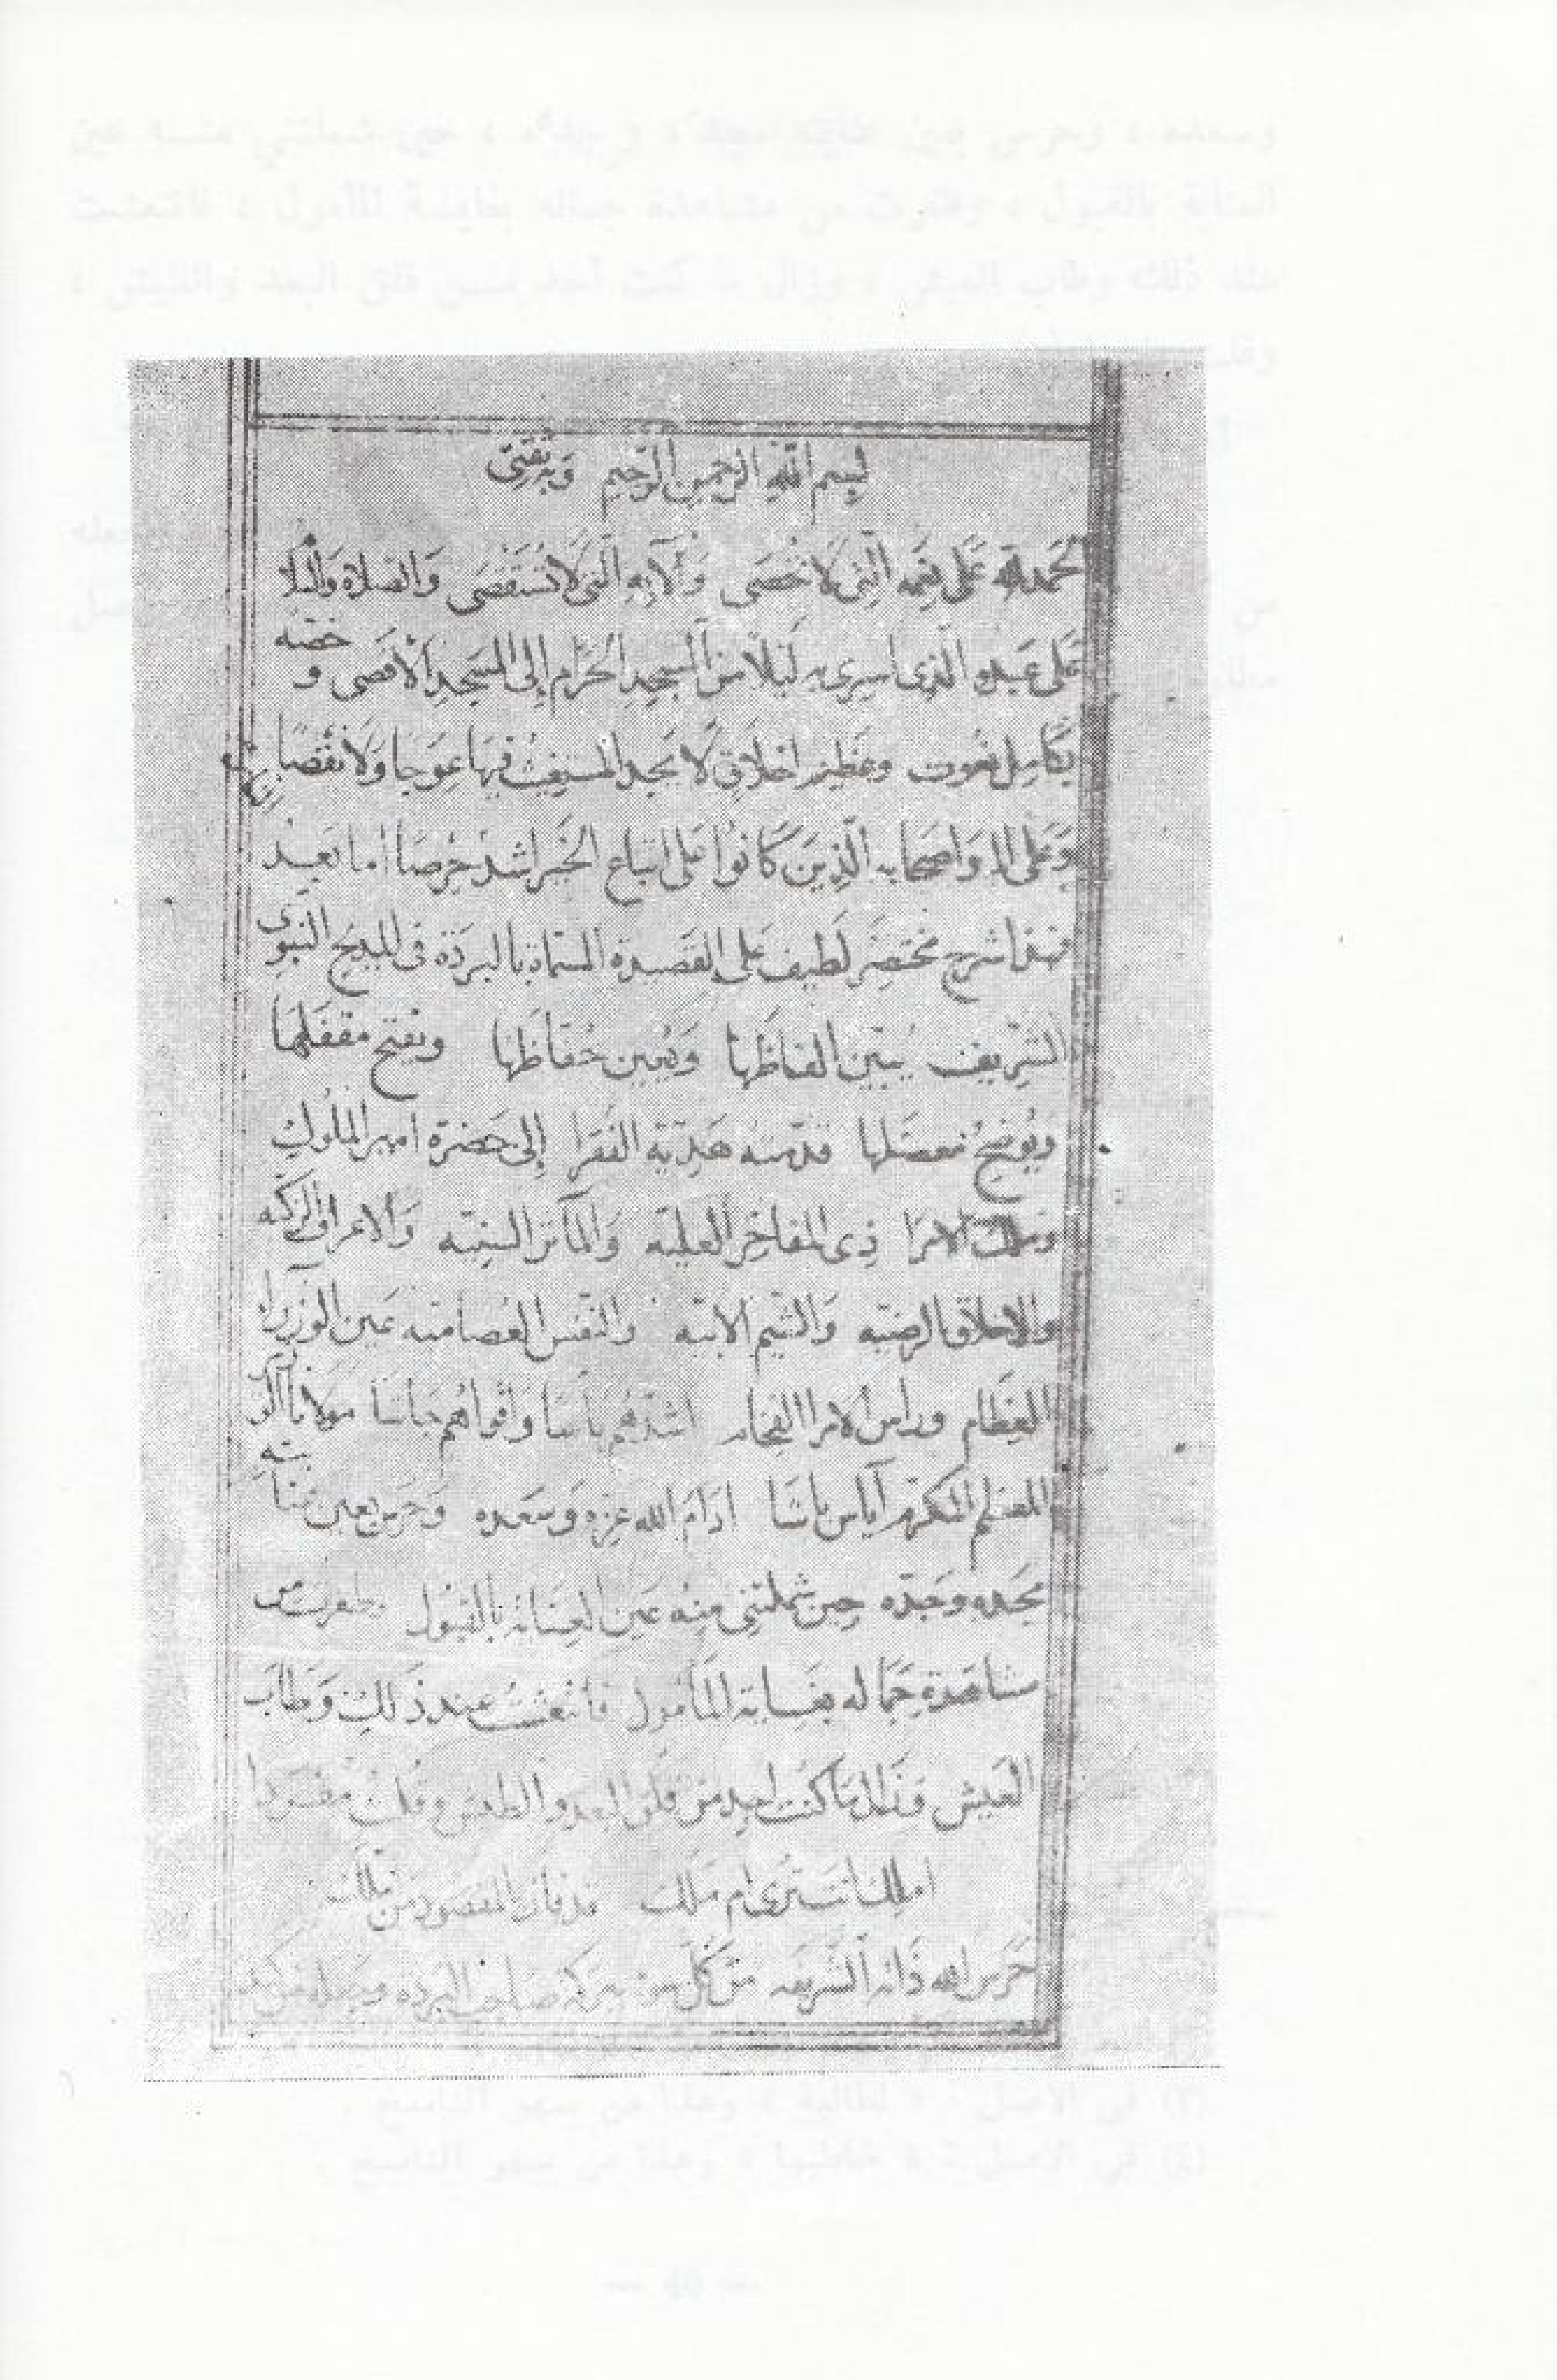 بسم الله الرحمن الرحيم وبه ثقتي
الحمد لله على نعمه التي لا تحصى وآلائه التي لا تستقصى والصلاة والسلا
على عبده الذي اسرى به ليلا من المسجد الحرام إلى المسجد الأقصى و خصه
بكامل نعوت وعظيم اخلاق لا يجد المستغيث فيها عوجا ولا نقصا
وعلى اله واصحابه الذين كانوا على اتباع الخير اشد حرصا اما بعد
فهذا شرح مختصر لطيف على القصيدة المسماة بالبردة في المديح النبوي
الشريف يبين الفاظها ويعين حفاظها ويفتح مقفلها
ويوضح مفصلها قدمته هدية الفقرا إلى حضرة امير الملوك
وملك الامرا ذي المفاخر العلية والمآثر السنية والاعراق الزكية
والاخلاق الرضية والشيم الابية والنفس العصامية عين الوزراء
العظام وراس الامرا الفخام اشدهم باسا واقواهم جاشا مولانا
المعظم المكرم آياس باشا ادام الله عزه وسعده وحرس بعين عنايته
مجده وجده حين شملتني منه عين العناية بالقبول وظفرت من
مشاهدة جماله بغاية المأمول فانتعشت عند ذلك وطاب
العيش وزال ما كنت اجد من قلق البعد والطيش وقلت
املك تشترى ام ملك قد فاز بالمقصود من
حرس الله ذاته الشريفه من كل سوء ببركة صاحب البردة